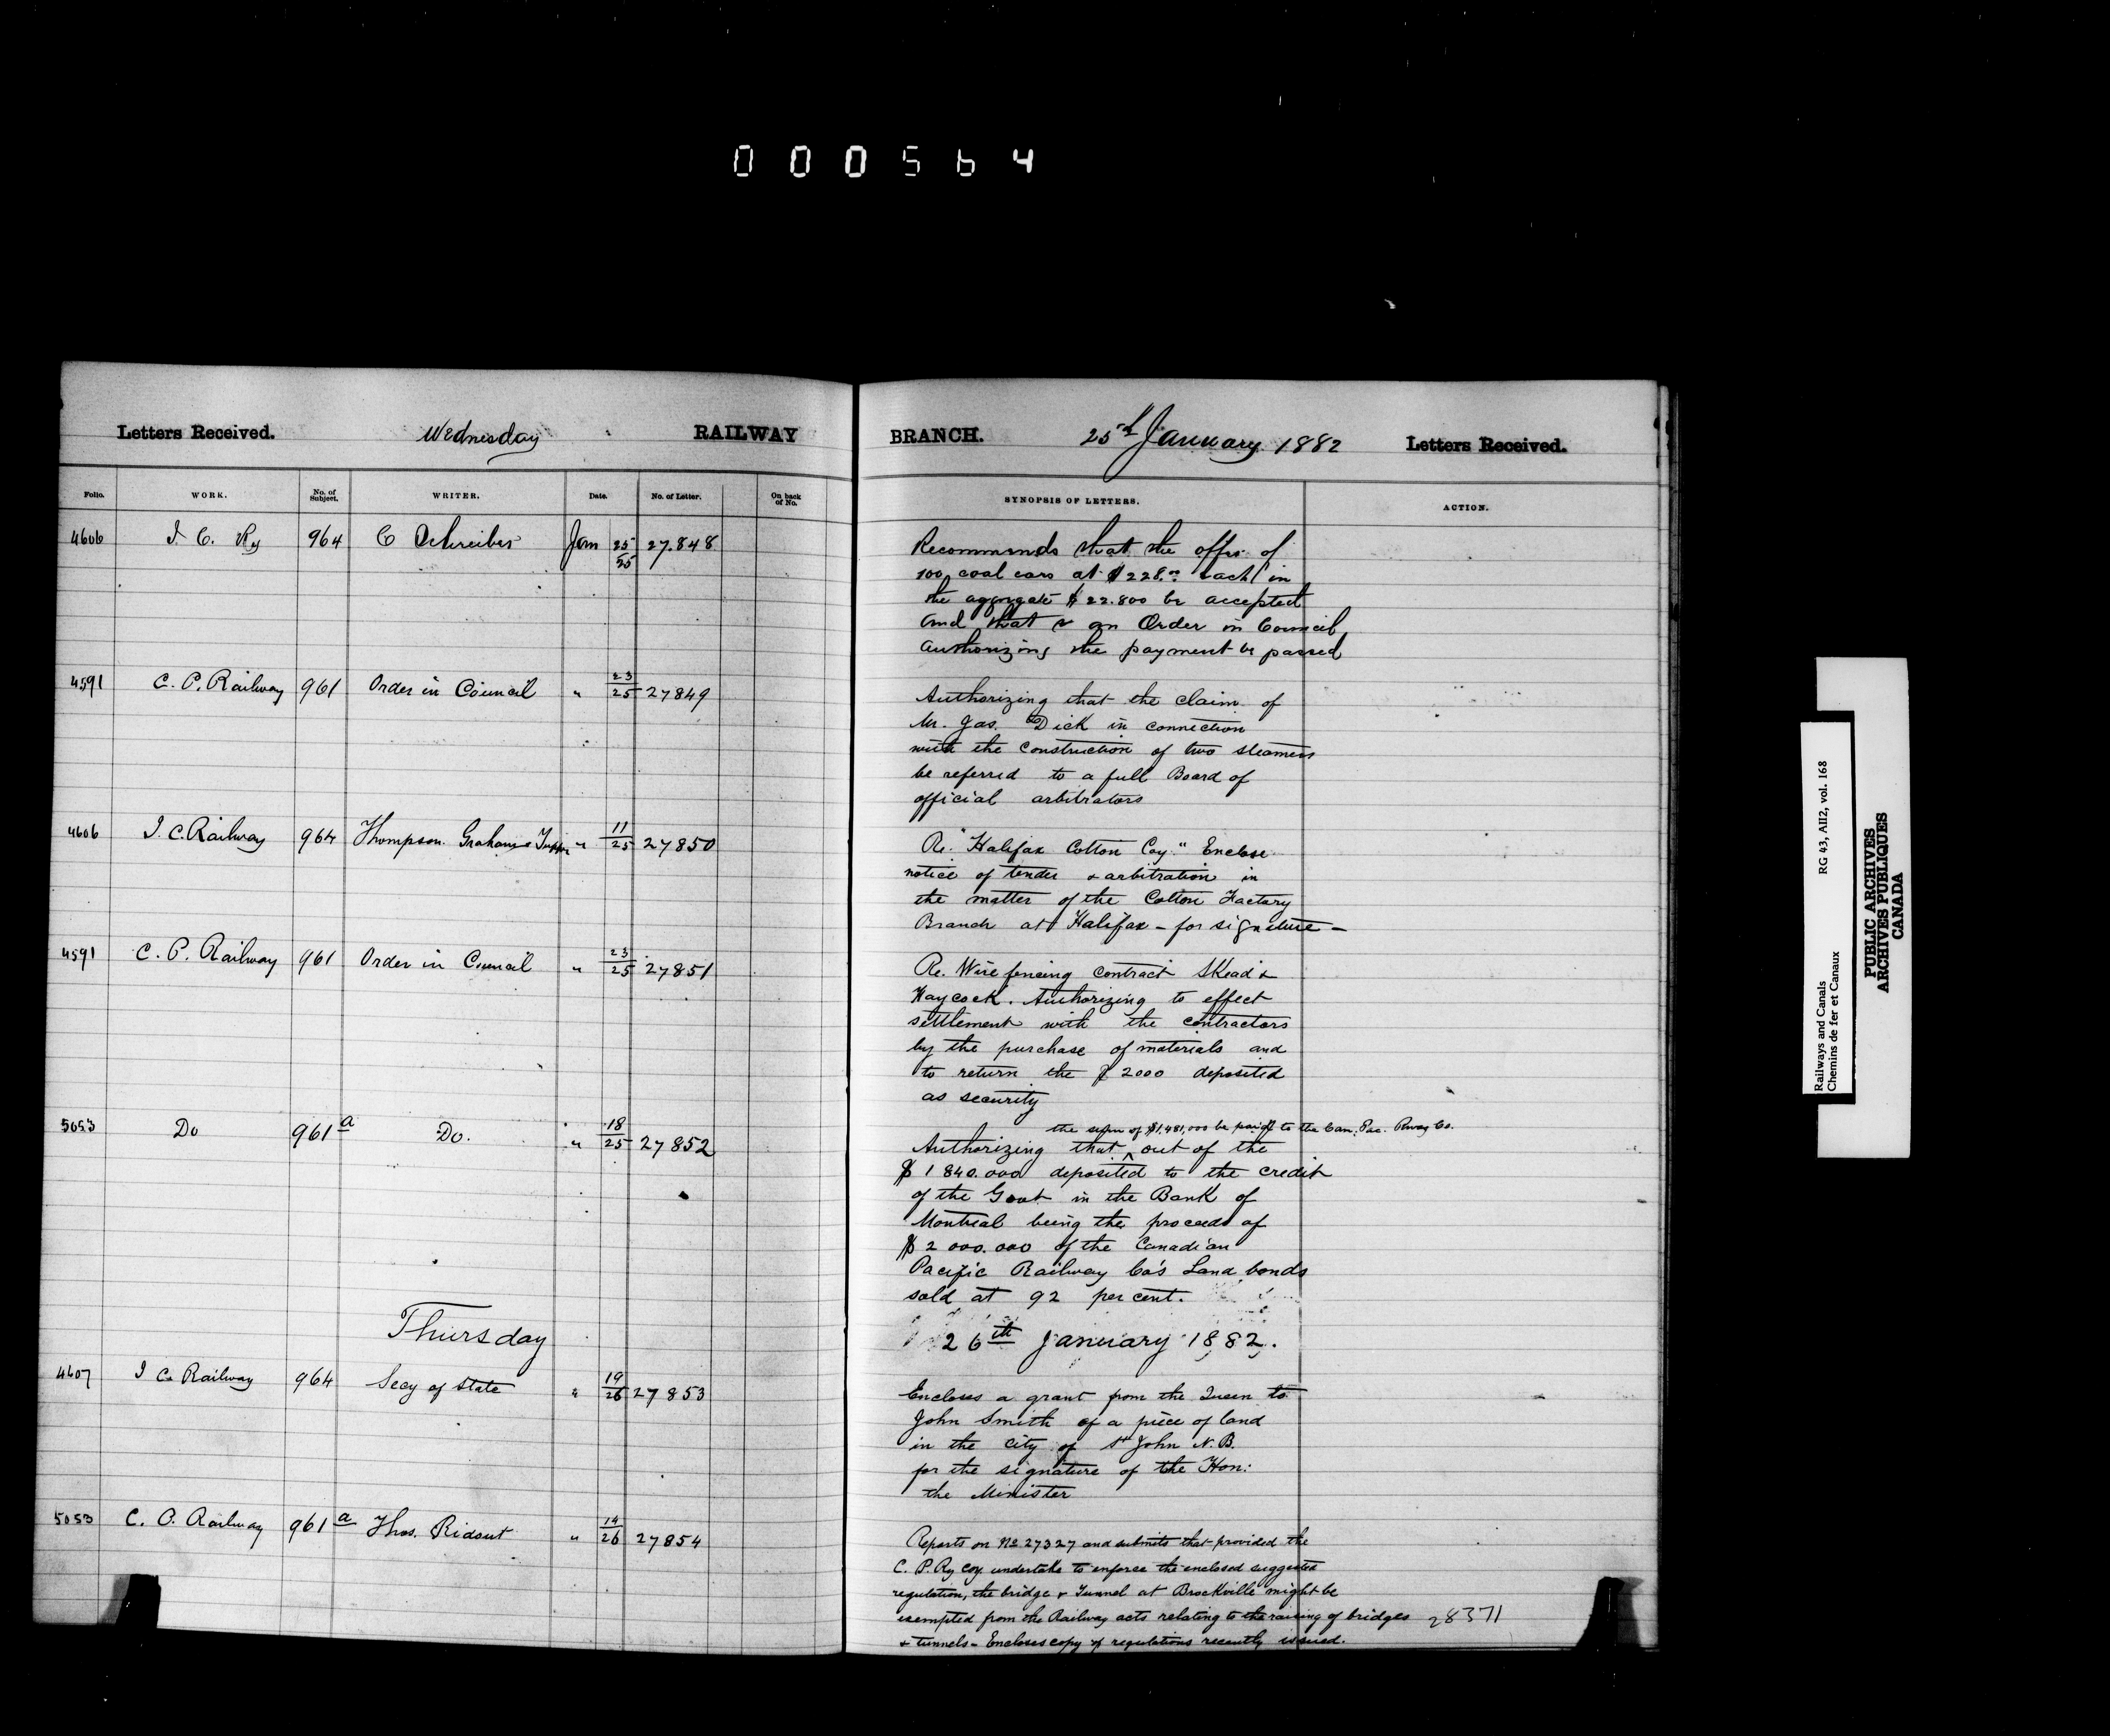 000564
Letters Received. Wednesday RAILWAY BRANCH. 25th January 1882 Letters Received.
Folio. WORK. No. of Subject. WRITER. Date. No. of Letter. On back of No. SYNOPSIS OF LETTERS. ACTION.
4606 I. C. Ry 964 C Schreiber Jan 25/25 27.848
Recommends that the offer of
100 coal cars at $228.00 each in
the aggregate $22.800 be accepted
and that an Order in Council
authorizing the payment be passed
4591 C. P. Railway 961 Order in Council " 23/25 27849
Authorizing that the claim of
Mr. Jas. Dick in connection
with the construction of two steamers
be referred to a full Board of
official arbitrators
4606 I. C. Railway 964 Thompson Graham & Tupper " 11/25 27850
Re. "Halifax Cotton Coy." Enclose
notice of tender & arbitration in
the matter of the Cotton Factory
Branch at Halifax - for signature -
4591 C. P. Railway 961 Order in Council " 23/25 27851
Re. Wire fencing contract Skead &
Haycock. Authorizing to effect
settlement with the contractors
by the purchase of materials and
to return the $2000 deposited
as security
5053 Do 961a Do. " 18/25 27852
the sum of $1,481,000 be paid to the Can. Pac. Rway Co.
Authorizing that ^ out of the
$1 840.000 deposited to the credit
of the Govt in the Bank of
Montreal being the proceeds of
$2 000.000 of the Canadian
Pacific Railway Co's Land bonds
sold at 92 per cent.
Thursday 26th January 1882.
4607 I C. Railway 964 Secy of State " 19/26 27853
Encloses a grant from the Queen to
John Smith of a piece of land
in the city of St John N.B.
for the signature of the Hon:
the Minister
5053 C. P. Railway 961a Thos. Ridout " 14/26 27854
Reports on No 27327 and submits that provided the
C. P. Ry Coy. undertake to enforce the enclosed suggested
regulation, the bridge & Tunnel at Brockville might be
exempted from the Railway acts relating to the raising of bridges 28371
& tunnels - Encloses copy of regulations recently issued.
Railways and Canals RG 43, AII2, vol. 168
Chemins de fer et Canaux
PUBLIC ARCHIVES
ARCHIVES PUBLIQUES
CANADA